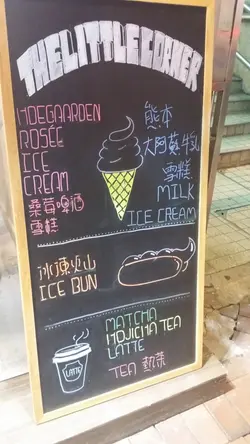 THE LITTLE CORNER
HOEGAARDEN
ROSÉE
ICE
CREAM
桑莓啤酒
雪糕
熊本
大阿蘇牛乳
雪糕
MILK
ICE CREAM
冰凍火山
ICE BUN
LATTE
MATCHA
HOJICHA TEA
LATTE
TEA 熱茶